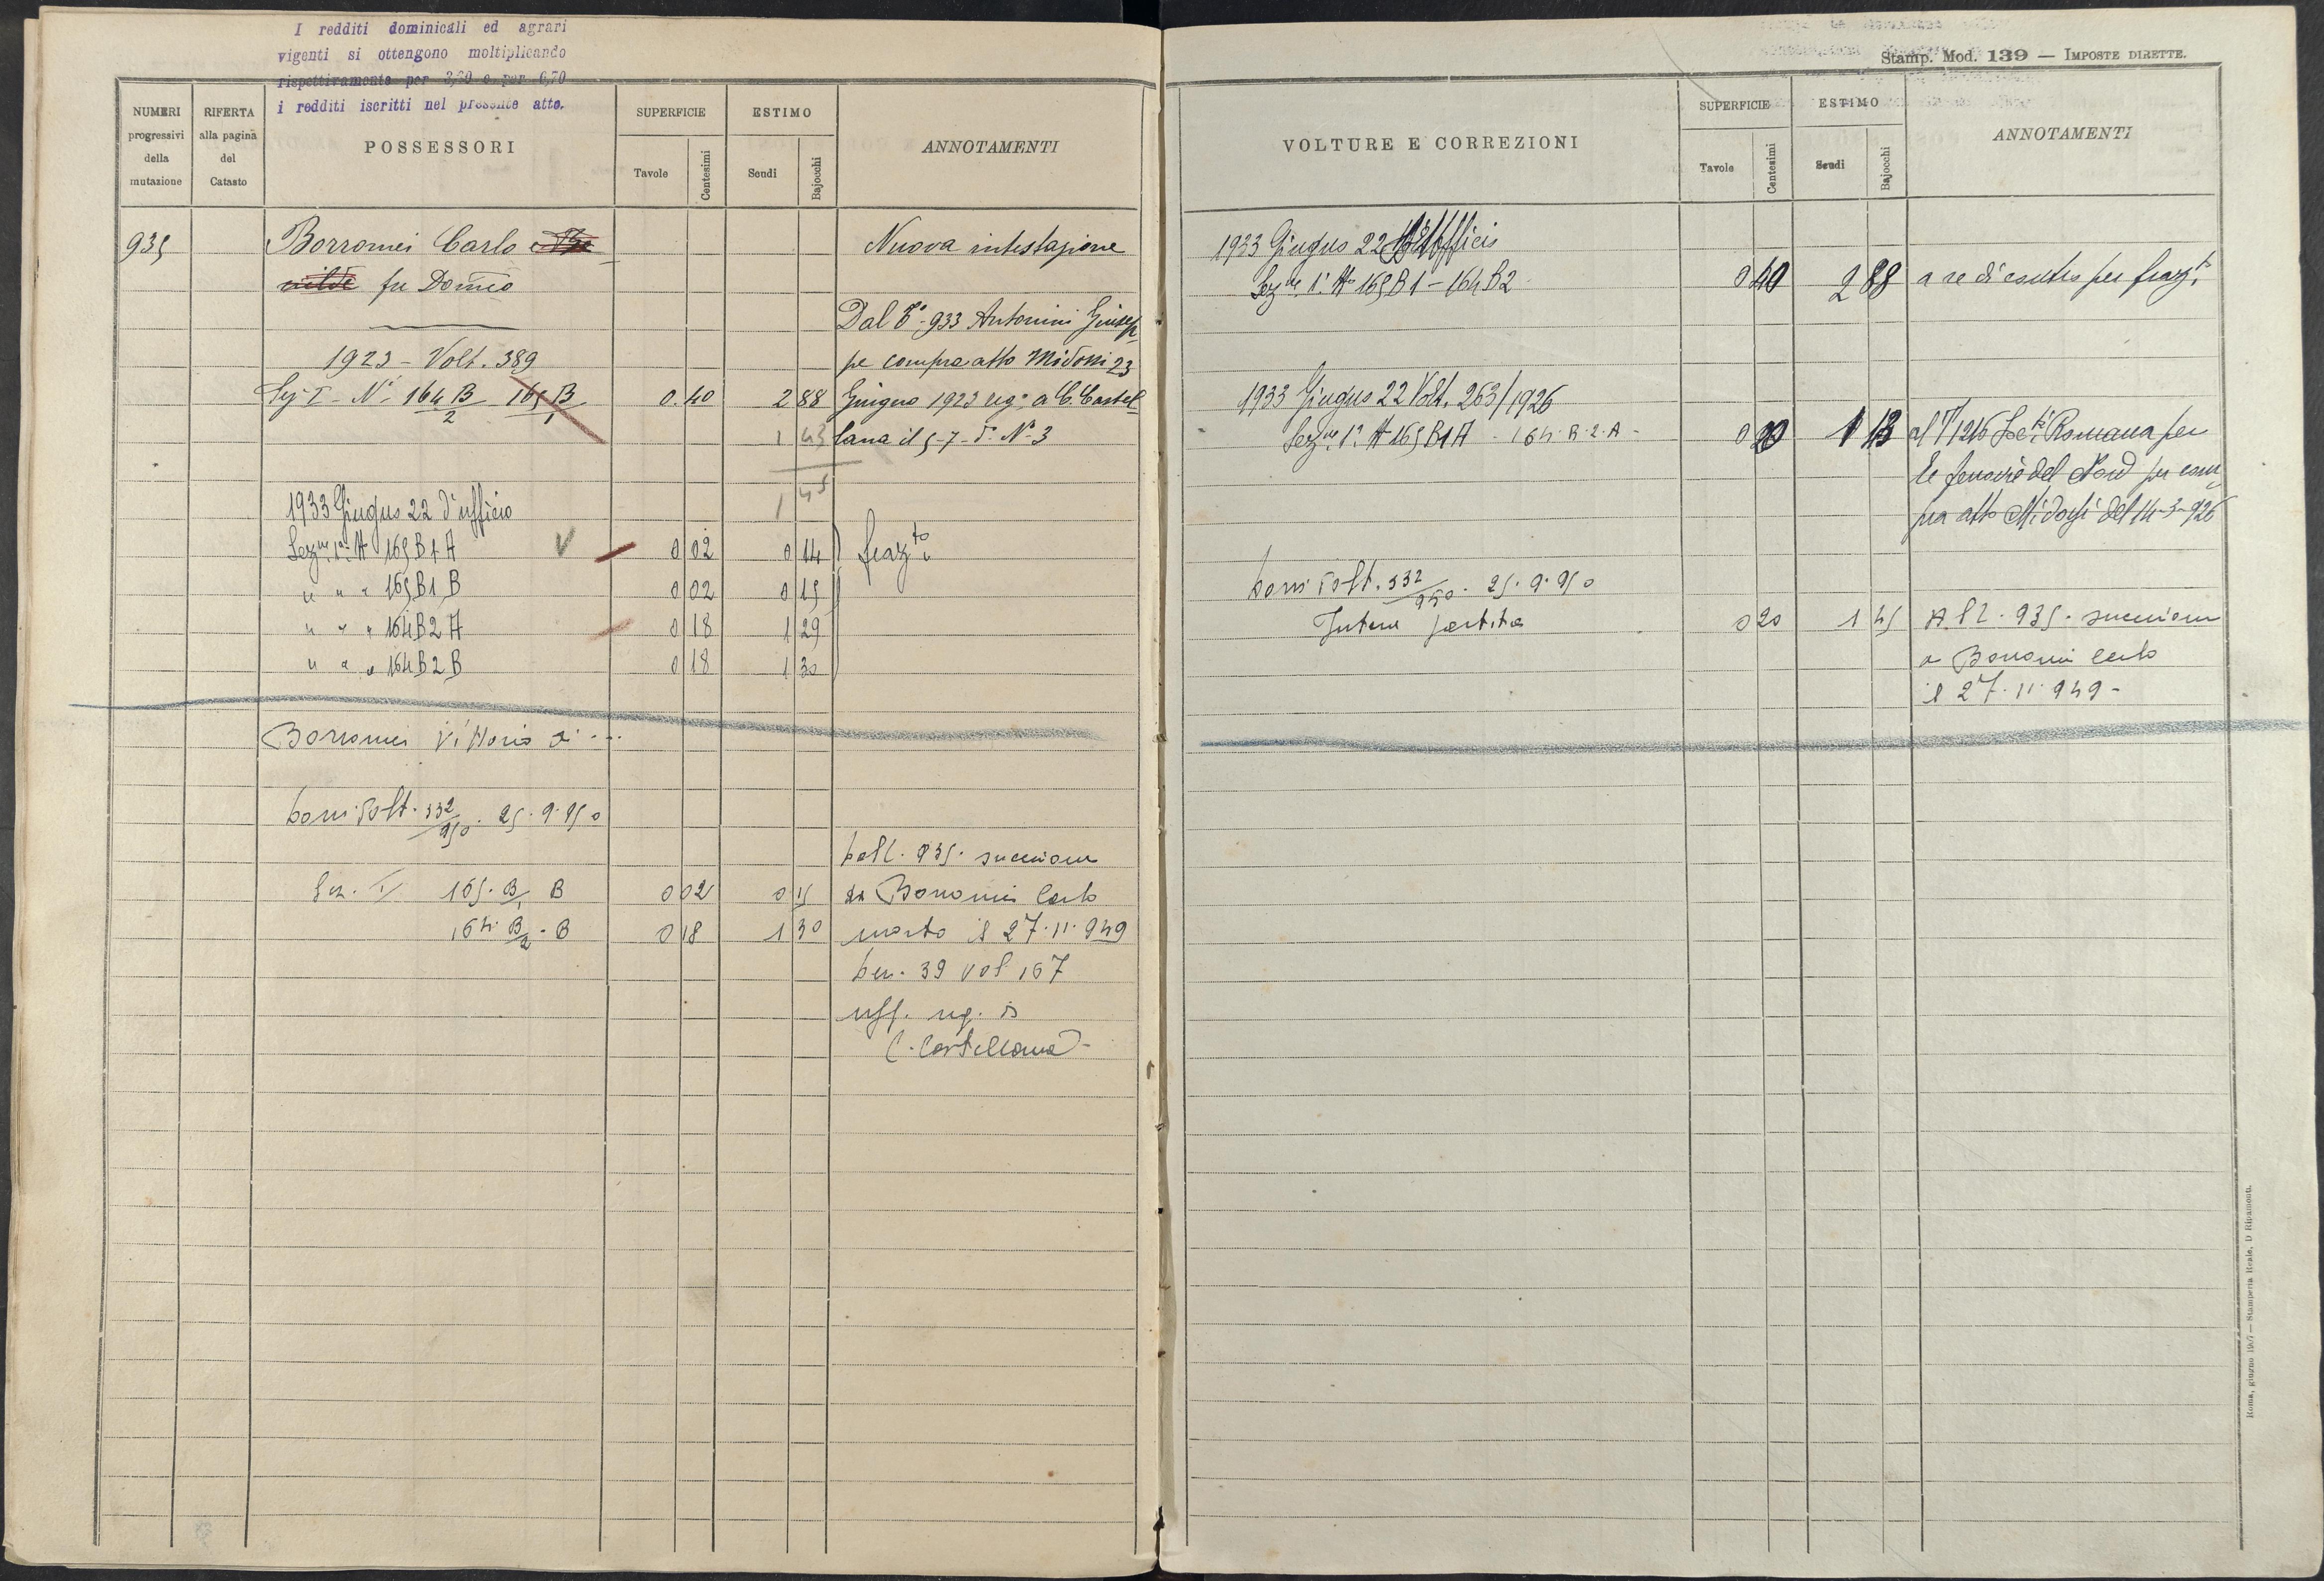 I redditi dominicali ed agrari
vigenti si ottengono moltiplicando
rispettivamente per 3,20 e per 6,70
i redditi iscritti nel presente atto.
NUMERI progressivi della mutazione
RIFERTA alla pagina del Catasto
POSSESSORI
SUPERFICIE
Tavole
Centesimi
ESTIMO
Scudi
Bajocchi
ANNOTAMENTI
935 Borromei Carlo Nuova intestazione
fu Domco
Dal C° 933 Antonini Giusep
1923 - Volt. 389 pe compra atto Midossi 23
Sez I - N° 164 B/2 165 B/1 0.40 2 88 Giugno 1923 reg° a C. Castel
1 43 lana il 5-7- d° N° 3
1 45
1933 Giugno 22 d'ufficio
Sezne 1a N 165 B1 A V 0 02 0 14 frazto
" " " 165 B1 B 0 02 0 15
" " " 164 B2 A 0 18 1 29
" " " 164 B2 B 0 18 1 30
Borromei Vittorio di ...
Volt. 332/950. 25.9.950
dal C. 935. successione
Sez. I 165. B/1 B 0 02 0 15 da Borromei Carlo
164. B/2 - B 0 18 1 30 morto il 27.11.949
den. 39 vol 167
uff. reg. di
C. Castellana -
Stamp. Mod. 139 — IMPOSTE DIRETTE.
VOLTURE E CORREZIONI
SUPERFICIE
Tavole
Centesimi
ESTIMO
Scudi
Bajocchi
ANNOTAMENTI
1933 Giugno 22 d'Ufficio
Sezne 1a N 165 B1 - 164 B2 0 40 2 88 a re di contro per frazto
1933 Giugno 22 Volt. 263/1926
Sezne 1a N 165 B1 A - 164. B. 2. A - 0 20 1 43 al 1216 Socta Romana per
le ferrovie del Nord per com
pra atto Midossi del 14-3-926
Volt. 332/950. 25.9.950
Intera partita 0 20 1 45 Al C. 935. successione
a Borromei Carlo
il 27.11.949 -
Roma, giugno 1917 — Stamperia Reale, D Ripamonti.